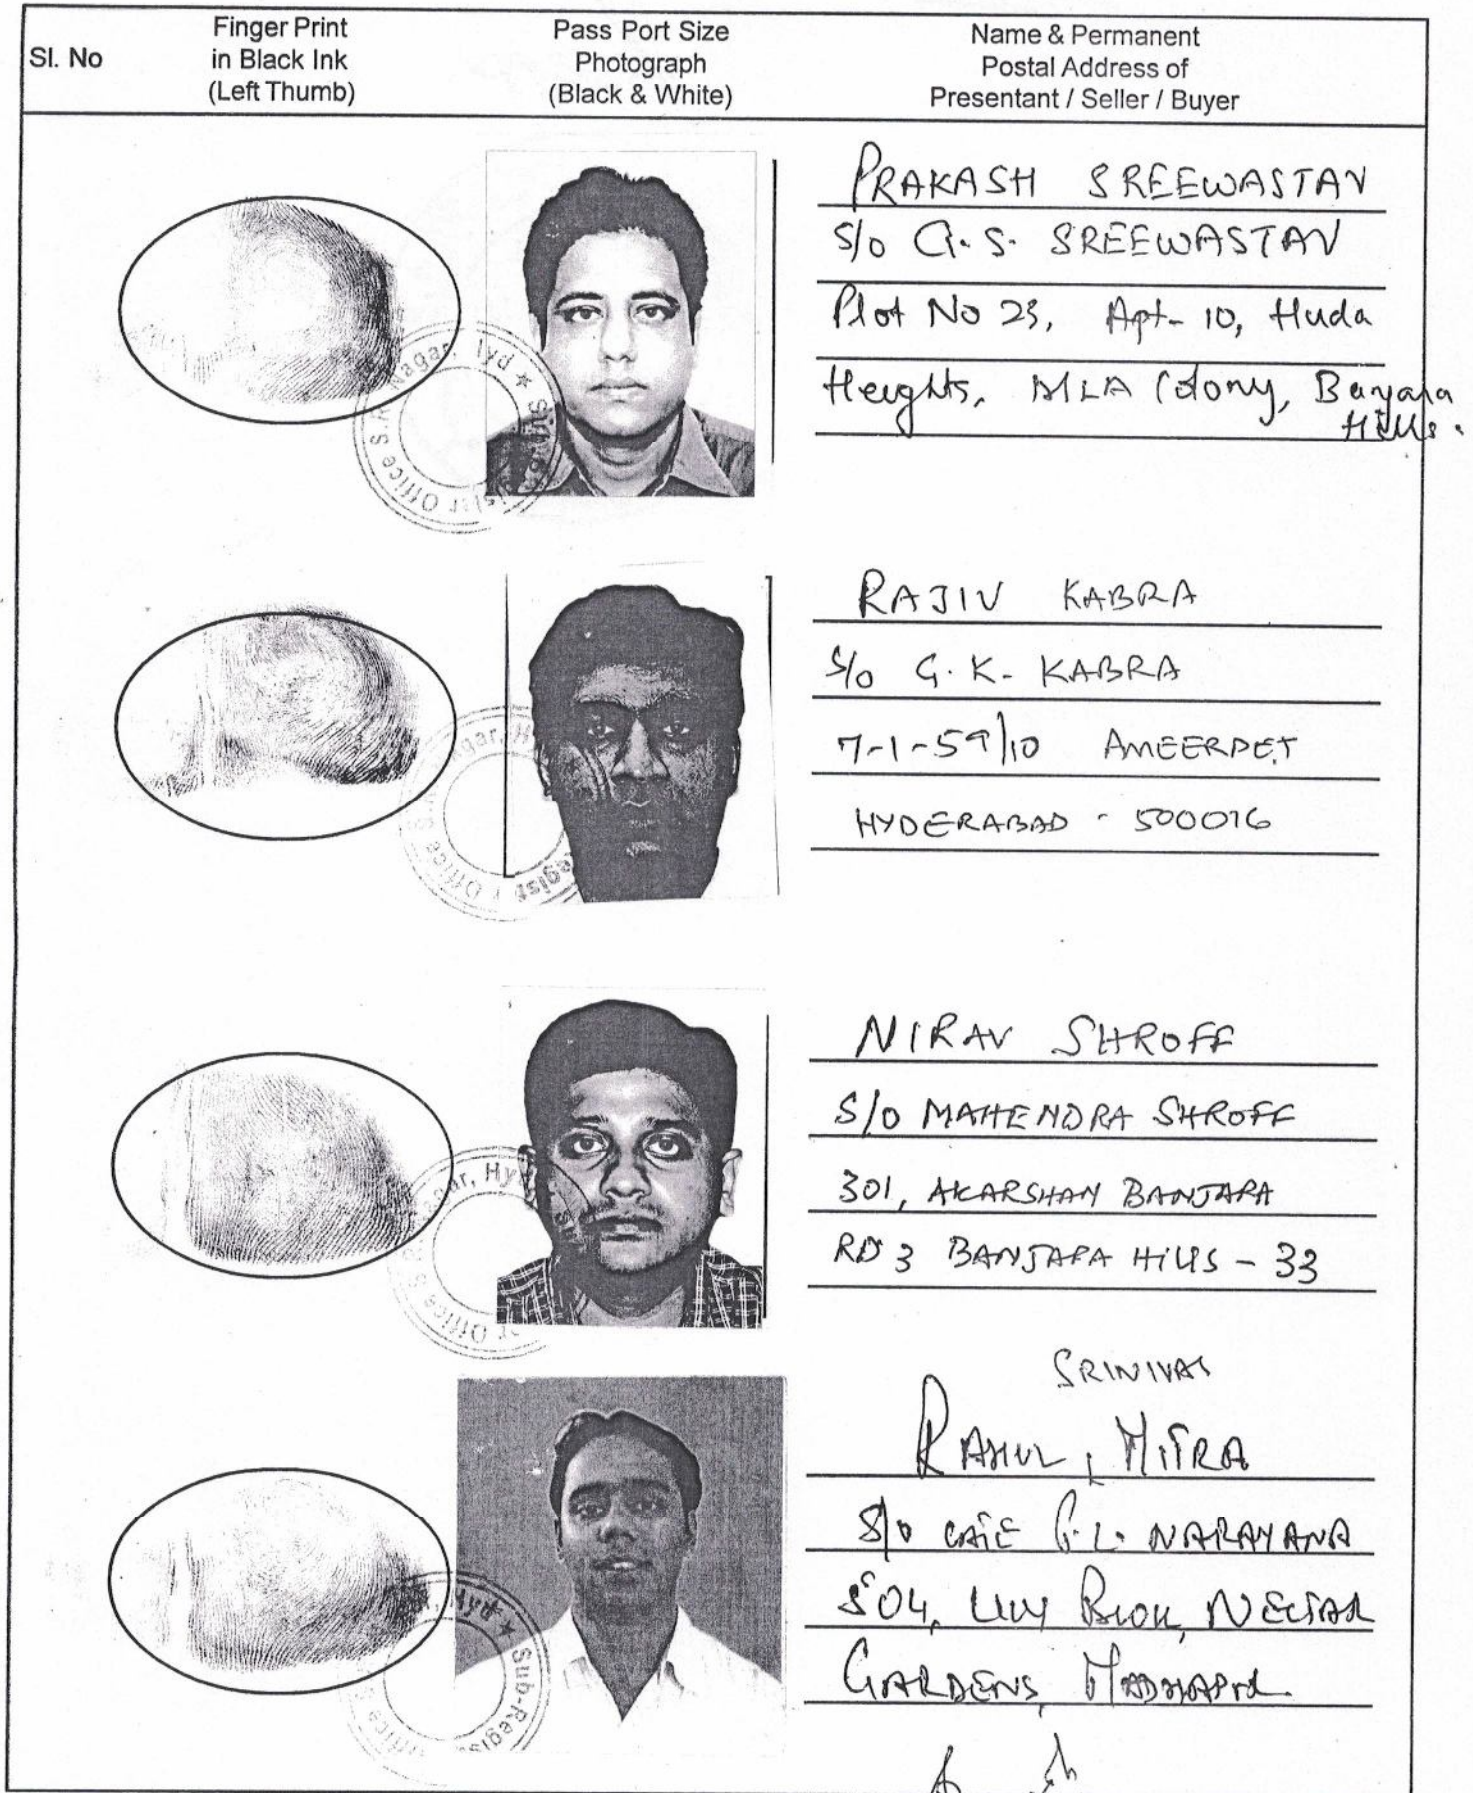 Sl. No
Finger Print
in Black Ink
(Left Thumb)
Pass Port Size
Photograph
(Black & White)
Name & Permanent
Postal Address of
Presentant / Seller / Buyer
PRAKASH SREEWASTAV
S/o G. S. SREEWASTAV
Plot No 23, Apt- 10, Huda
Heights, MLA Colony, Banjara
Hills.
Nagar, Hyd * Sub-
Office S.R.
RAJIV KABRA
S/o G. K. KABRA
7-1-59/10 AMEERPET
HYDERABAD - 500016
Office
NIRAV SHROFF
S/O MAHENDRA SHROFF
301, AKARSHAN BANJARA
RD 3 BANJARA HILLS - 33
Office S.
SRINIVAS
RAHUL, MITRA
S/o LATE G. L. NARAYANA
504, LILY BLOCK, NECTAR
GARDENS, MADHAPUR
Hyd * Sub-Regis
Office